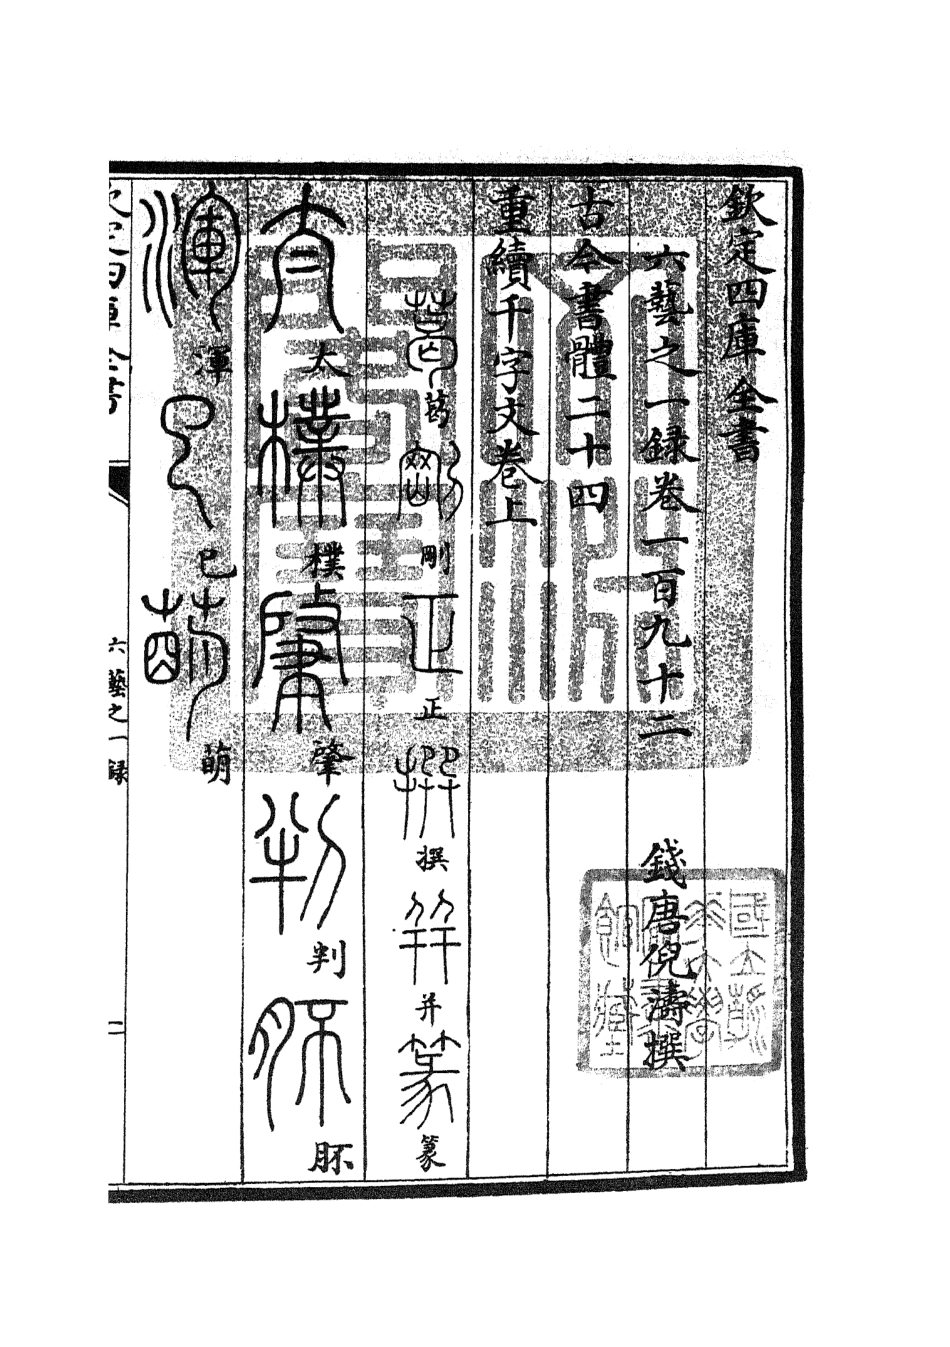 欽定四庫全書
六藝之一錄卷一百九十二
錢唐倪濤撰
古今書體二十四
重續千字文卷上
葛剛正撰并篆
太樸肇判胚
渾已萌
六藝之一錄